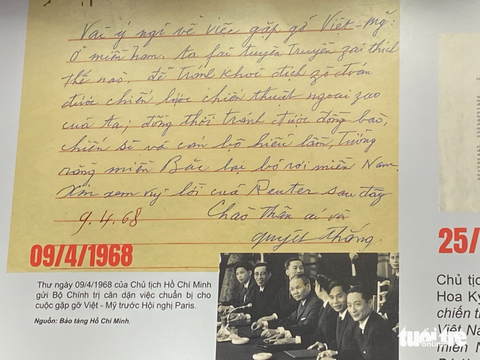 Vài ý ngĩ về việc gặp gỡ Việt-Mỹ:
Ở miền Nam, ta fải tuyên truyền zải thích
thế nào, để tránh khỏi địch zò đoán
được chiến lược chiến thuật ngoại zao
của ta; đồng thời tránh được đồng bào,
chiến sĩ và cán bộ hiểu lầm, tưởng
rằng miền Bắc bỏ rơi miền Nam.
Xin xem kỹ lời của Reuter sau đây
9.4.68 Chào thân ái và
quyết thắng.
09/4/1968
Thư ngày 09/4/1968 của Chủ tịch Hồ Chí Minh
gửi Bộ Chính trị căn dặn việc chuẩn bị cho
cuộc gặp gỡ Việt - Mỹ trước Hội nghị Paris.
Nguồn: Bảo tàng Hồ Chí Minh.
25/
Chủ tịc
Hoa Kỳ
chiến th
Việt Na
miền N
tuổi trẻ
online